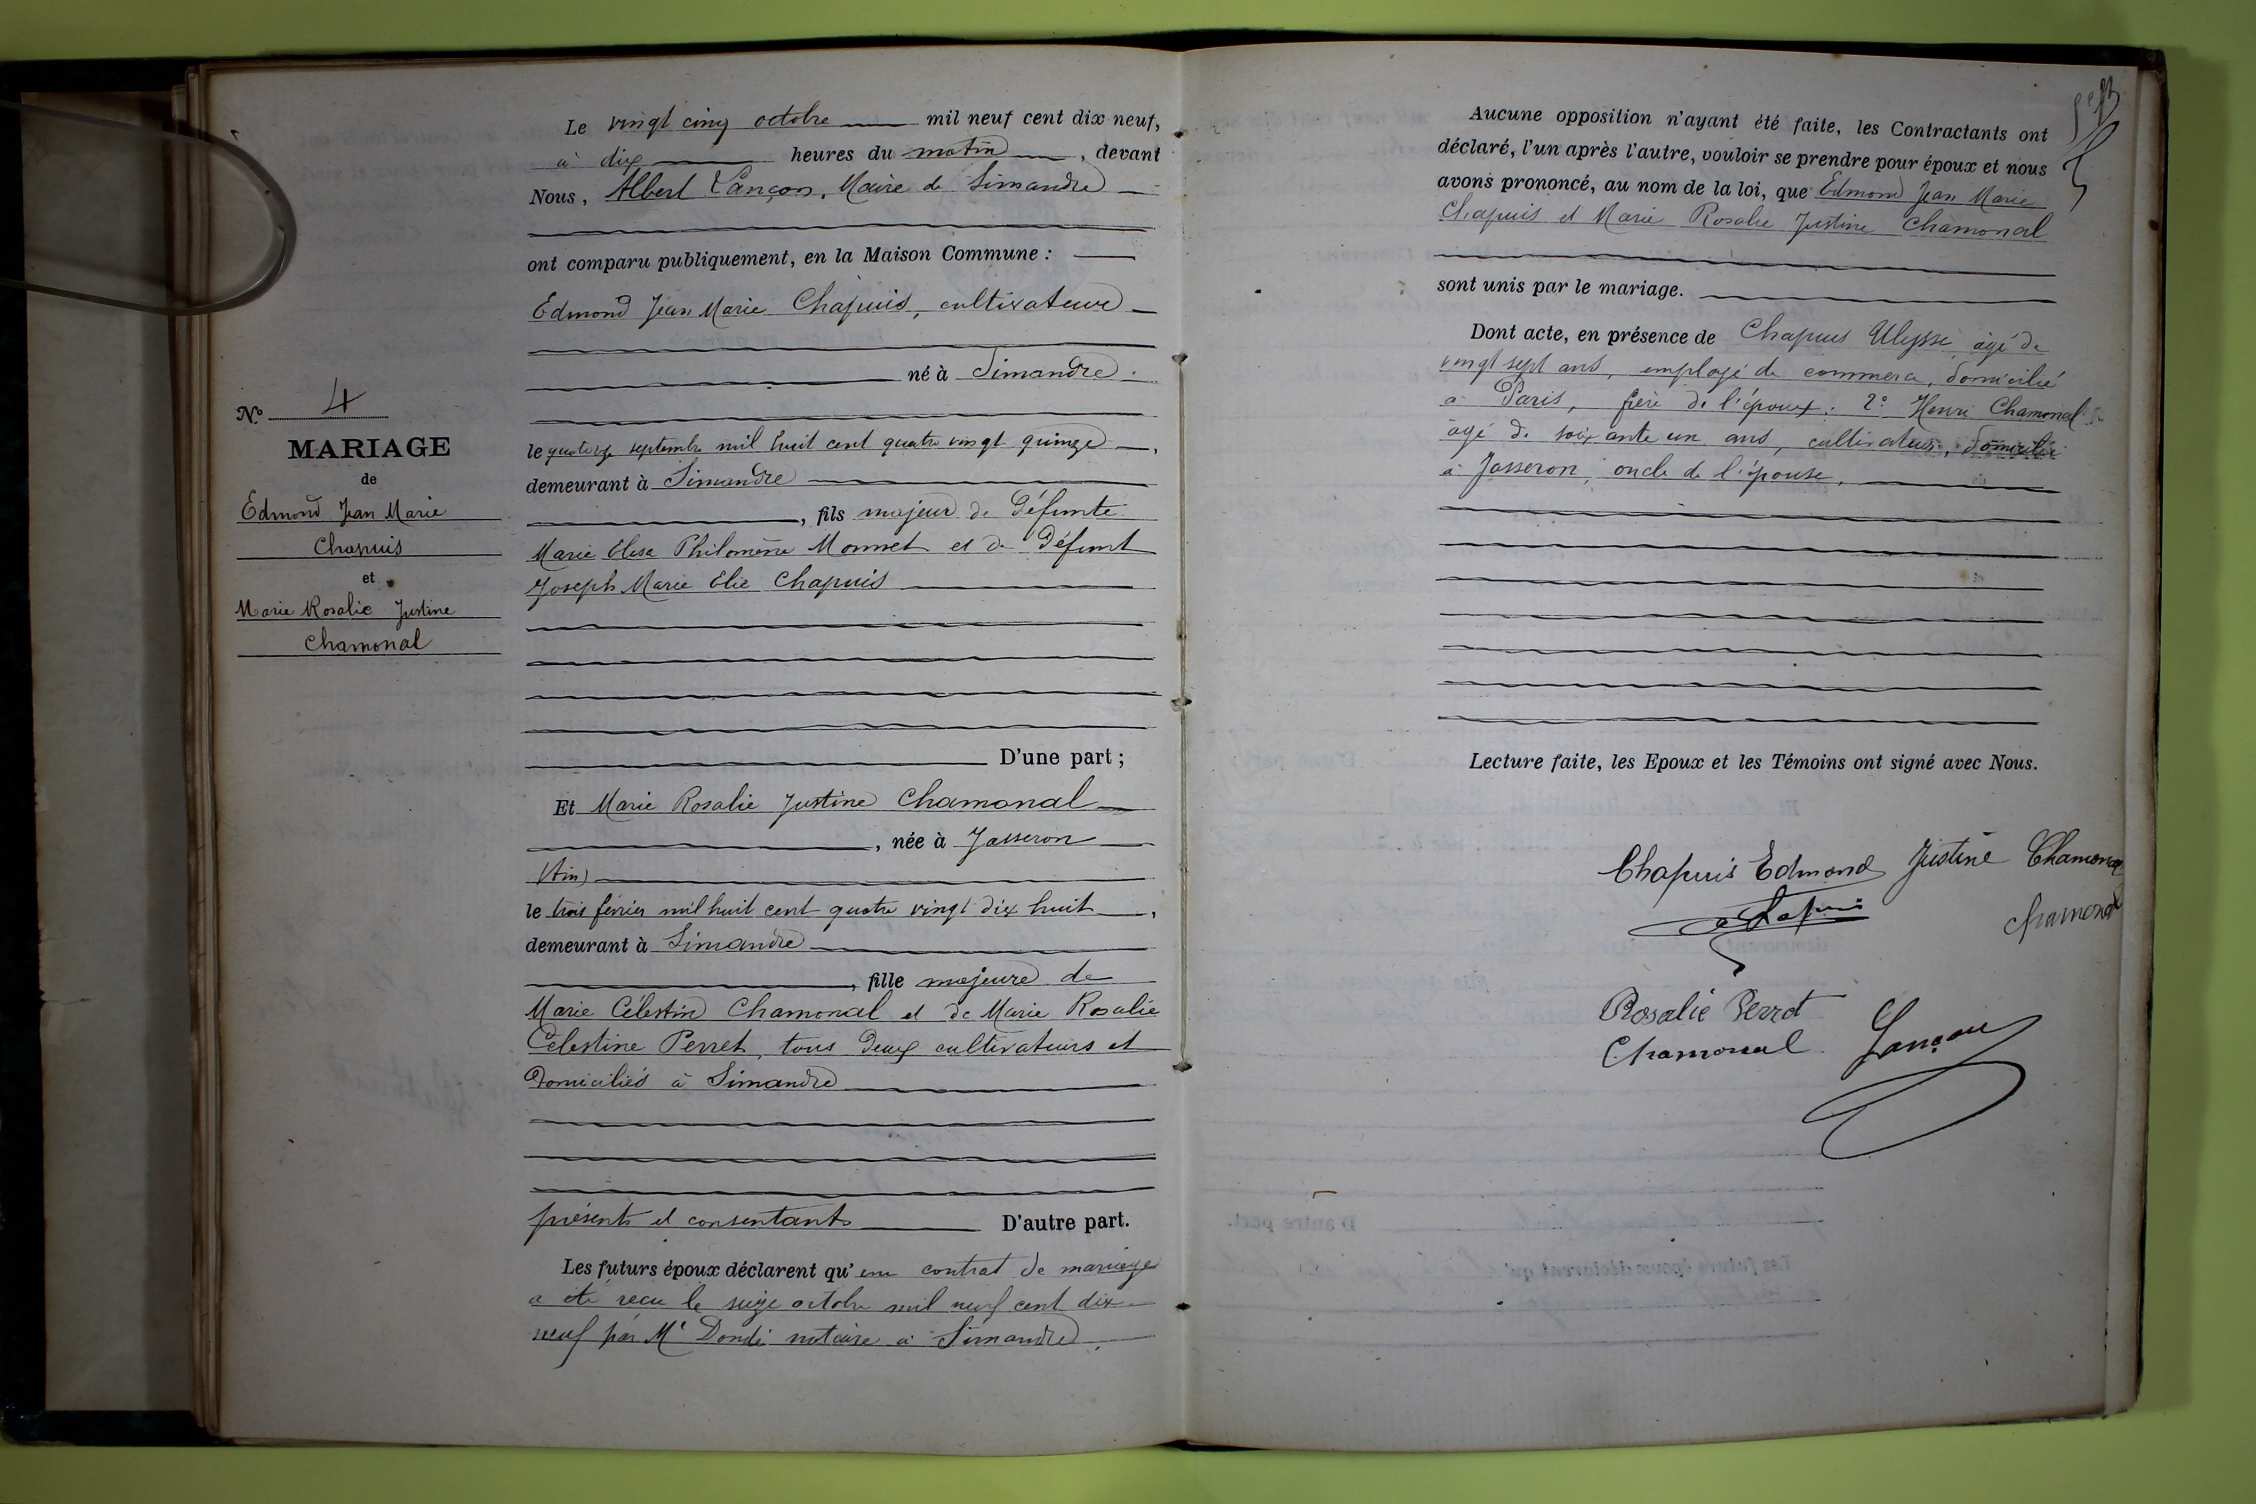 N° 4
MARIAGE
de
Edmond Jean Marie
Chapuis
et
Marie Rosalie Justine
Chamonal
Le vingt cinq octobre mil neuf cent dix neuf,
à dix heures du matin, devant
Nous, Albert Lançon, Maire de Simandre
ont comparu publiquement, en la Maison Commune :
Edmond Jean Marie Chapuis, cultivateur
né à Simandre
le quatorze septembre mil huit cent quatre vingt quinze,
demeurant à Simandre
, fils majeur de défunte
Marie Elisa Philomène Monnet et de défunt
Joseph Marie Elie Chapuis
D'une part ;
Et Marie Rosalie Justine Chamonal
, née à Jasseron
(Ain)
le trois février mil huit cent quatre vingt dix huit,
demeurant à Simandre
, fille majeure de
Marie Célestin Chamonal et de Marie Rosalie
Célestine Perret, tous deux cultivateurs et
domiciliés à Simandre
présents et consentants D'autre part.
Les futurs époux déclarent qu'un contrat de mariage
a été reçu le seize octobre mil neuf cent dix
neuf par Me Dondé notaire à Simandre.
Aucune opposition n'ayant été faite, les Contractants ont
déclaré, l'un après l'autre, vouloir se prendre pour époux et nous
avons prononcé, au nom de la loi, que Edmond Jean Marie
Chapuis et Marie Rosalie Justine Chamonal
sont unis par le mariage.
Dont acte, en présence de Chapuis Ulysse, âgé de
vingt sept ans, employé de commerce, domicilié
à Paris, frère de l'époux : 2° Henri Chamonal
âgé de soixante un ans, cultivateur, domicilié
à Jasseron, oncle de l'épouse.
Lecture faite, les Epoux et les Témoins ont signé avec Nous.
Chapuis Edmond Justine Chamonal
Chapuis
Chamonal
Rosalie Perret
Chamonal Lançon